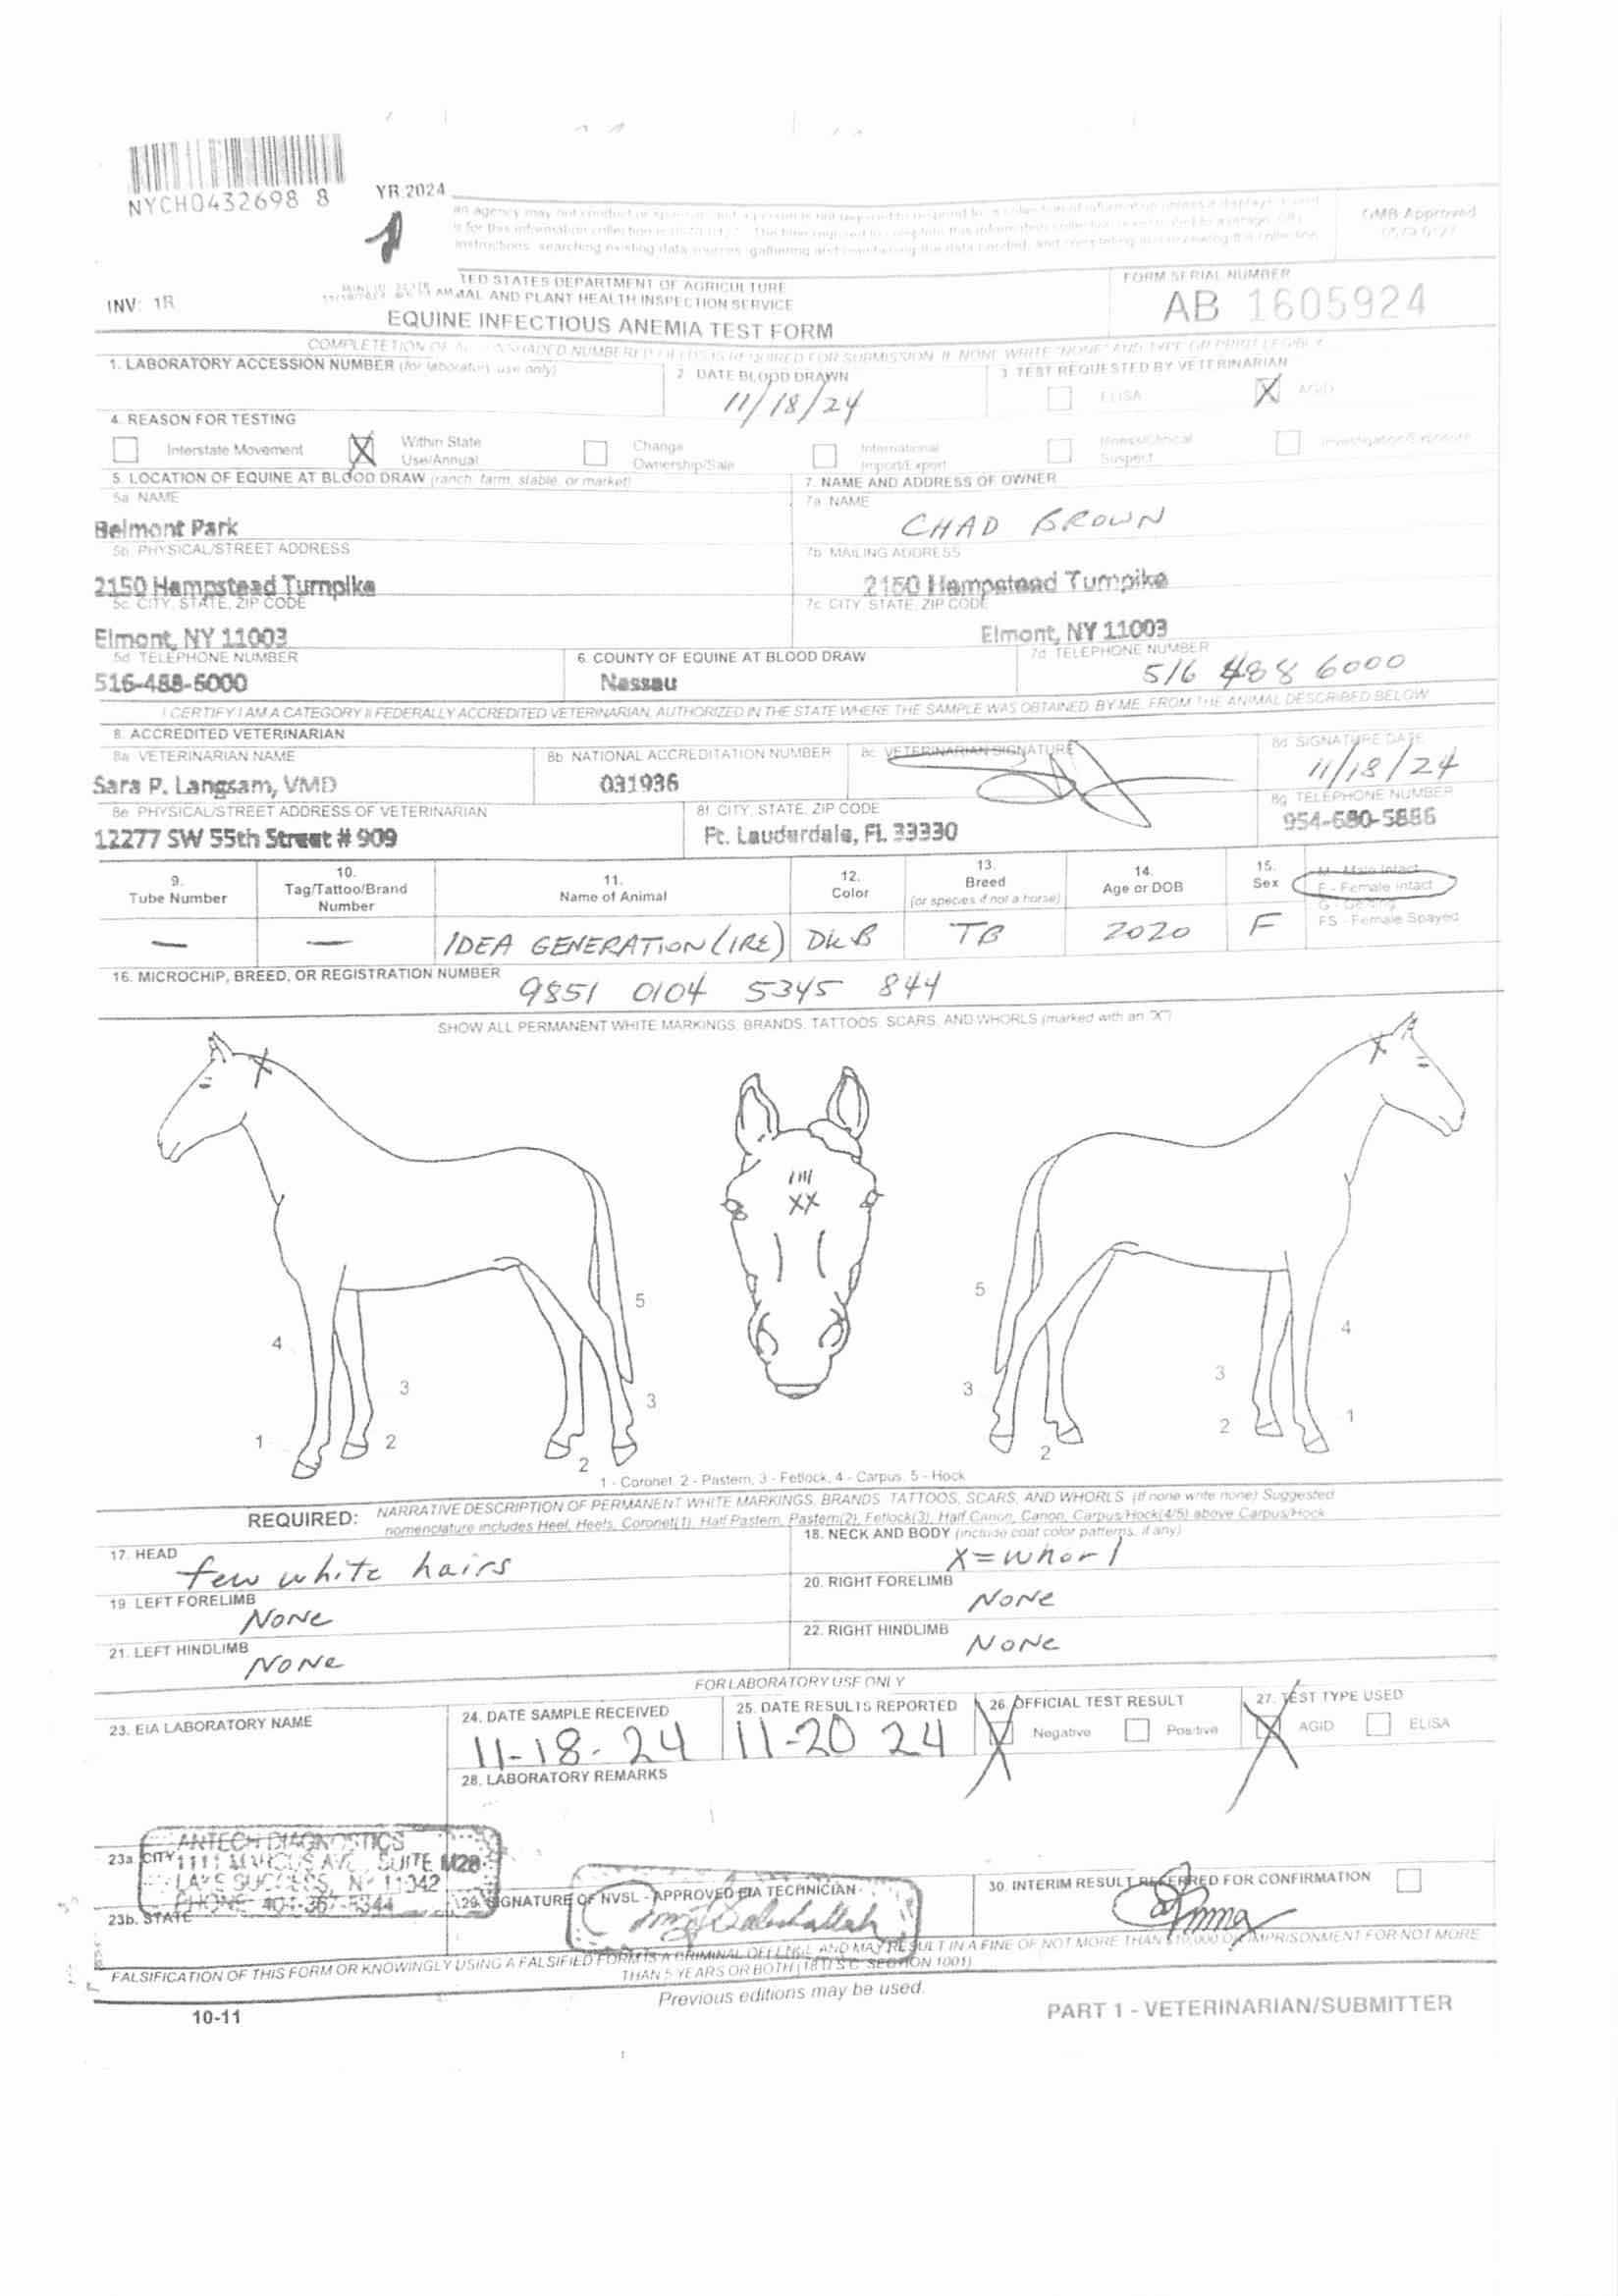 NYCH0432698 8
YR 2024
INV: 1R
OMB Approved
TED STATES DEPARTMENT OF AGRICULTURE
AND PLANT HEALTH INSPECTION SERVICE
EQUINE INFECTIOUS ANEMIA TEST FORM
FORM SERIAL NUMBER
AB 1605924
1. LABORATORY ACCESSION NUMBER (for laboratory use only)
2. DATE BLOOD DRAWN
11/18/24
3. TEST REQUESTED BY VETERINARIAN
ELISA
X AGID
4. REASON FOR TESTING
Interstate Movement
X Within State Use/Annual
Change Ownership/Sale
International Import/Export
Illness/Clinical Suspect
Investigation/Exposure
5. LOCATION OF EQUINE AT BLOOD DRAW (ranch, farm, stable, or market)
5a. NAME
Belmont Park
5b. PHYSICAL/STREET ADDRESS
2150 Hempstead Turnpike
5c. CITY, STATE, ZIP CODE
Elmont, NY 11003
5d. TELEPHONE NUMBER
516-488-6000
6. COUNTY OF EQUINE AT BLOOD DRAW
Nassau
7. NAME AND ADDRESS OF OWNER
7a. NAME
CHAD BROWN
7b. MAILING ADDRESS
2150 Hempstead Turnpike
7c. CITY, STATE, ZIP CODE
Elmont, NY 11003
7d. TELEPHONE NUMBER
516 488 6000
I CERTIFY I AM A CATEGORY II FEDERALLY ACCREDITED VETERINARIAN, AUTHORIZED IN THE STATE WHERE THE SAMPLE WAS OBTAINED BY ME, FROM THE ANIMAL DESCRIBED BELOW
8. ACCREDITED VETERINARIAN
8a. VETERINARIAN NAME
Sara P. Langsam, VMD
8b. NATIONAL ACCREDITATION NUMBER
031936
8c. VETERINARIAN SIGNATURE
8d. SIGNATURE DATE
11/18/24
8e. PHYSICAL/STREET ADDRESS OF VETERINARIAN
12277 SW 55th Street # 909
8f. CITY, STATE, ZIP CODE
Ft. Lauderdale, FL 33330
8g. TELEPHONE NUMBER
954-680-5886
9. Tube Number
10. Tag/Tattoo/Brand Number
11. Name of Animal
12. Color
13. Breed (or species if not a horse)
14. Age or DOB
15. Sex
M - Male Intact
F - Female Intact
G - Gelding
FS - Female Spayed
— — IDEA GENERATION (IRE) DKB TB 2020 F
16. MICROCHIP, BREED, OR REGISTRATION NUMBER
9851 0104 5345 844
SHOW ALL PERMANENT WHITE MARKINGS, BRANDS, TATTOOS, SCARS, AND WHORLS (marked with an "X")
X
XX
X
5
5
4
4
3
3
3
3
1
2
2
2
2
1
1 - Coronet, 2 - Pastern, 3 - Fetlock, 4 - Carpus, 5 - Hock
REQUIRED: NARRATIVE DESCRIPTION OF PERMANENT WHITE MARKINGS, BRANDS, TATTOOS, SCARS, AND WHORLS (if none write none) Suggested
nomenclature includes Heel, Heels, Coronet(1), Half Pastern, Pastern(2), Fetlock(3), Half Canon, Canon, Carpus/Hock(4/5) above Carpus/Hock
17. HEAD
few white hairs
18. NECK AND BODY (include coat color patterns, if any)
X = whorl
19. LEFT FORELIMB
NONE
20. RIGHT FORELIMB
NONE
21. LEFT HINDLIMB
NONE
22. RIGHT HINDLIMB
NONE
FOR LABORATORY USE ONLY
23. EIA LABORATORY NAME
24. DATE SAMPLE RECEIVED
11-18-24
25. DATE RESULTS REPORTED
11-20 24
26. OFFICIAL TEST RESULT
X Negative
Positive
27. TEST TYPE USED
X AGID
ELISA
28. LABORATORY REMARKS
ANTECH DIAGNOSTICS
23a. CITY
1111 MARCUS AVE., SUITE M28
LAKE SUCCESS, NY 11042
23b. STATE
29. SIGNATURE OF NVSL - APPROVED EIA TECHNICIAN
30. INTERIM RESULT REFERRED FOR CONFIRMATION
FALSIFICATION OF THIS FORM OR KNOWINGLY USING A FALSIFIED FORM IS A CRIMINAL OFFENSE AND MAY RESULT IN A FINE OF NOT MORE THAN $10,000 OR IMPRISONMENT FOR NOT MORE
THAN 5 YEARS OR BOTH (18 U.S.C. SECTION 1001)
Previous editions may be used.
10-11
PART 1 - VETERINARIAN/SUBMITTER